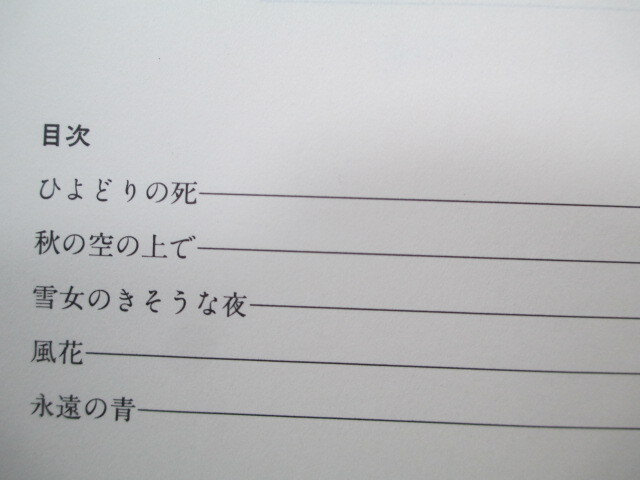 目次
ひよどりの死
秋の空の上で
雪女のきそうな夜
風花
永遠の青